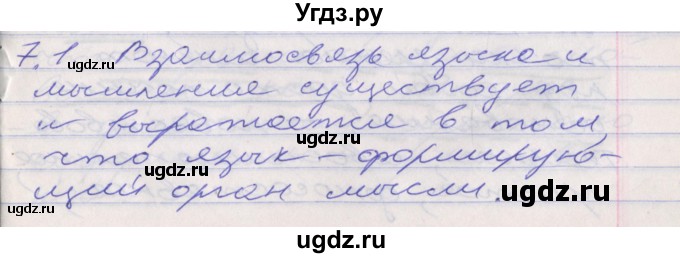 Угдз.ру
7.1 Взаимосвязь языка и
мышление существует
и выражается в том,
что язык - формирую-
щий орган мысли.
gdz.ru
ugdz.ru
ugdz.ru
ugdz.ru
ugdz.ru
ugdz.ru
ugdz.ru